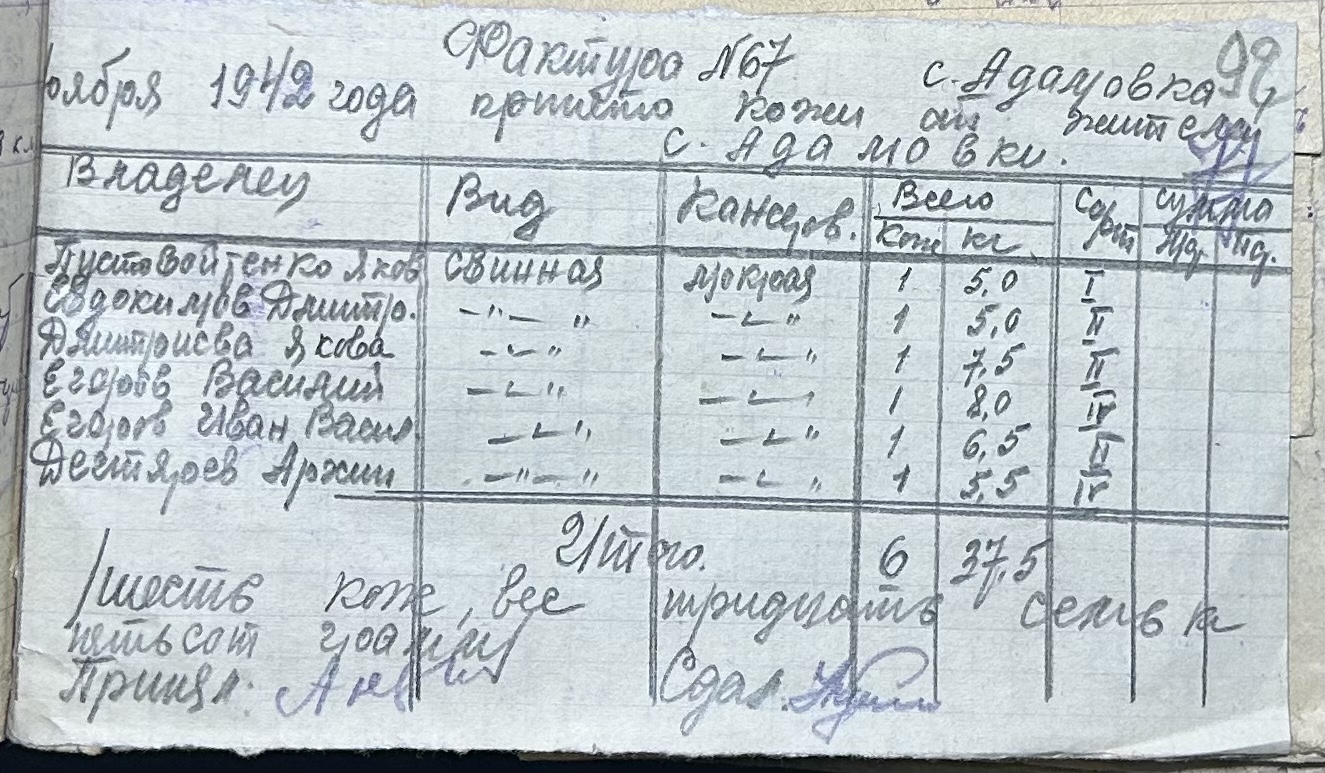 Фактура №67
с. Адамовка 92
ноября 1942 года принято кожи от жителей
с. Адамовки.
Владелец Вид Консеров. Всего Сорт сумма
кож кг
Пустовойтенко Яков свинная мокрая 1 5,0 I
Евдокимов Дмитр. -"- " -"- 1 5,0 II
Дмитриева Якова -"- -"- 1 7,5 II
Егоров Василий -"- -"- 1 8,0 IV
Егоров Иван Васил. -"- -"- 1 6,5 II
Дегтярев Архип -"-"- -"- 1 5,5 IV
Итого. 6 37,5
/шесть кож, вес тридцать семь кг
пятьсот грамм/
Принял: Сдал: